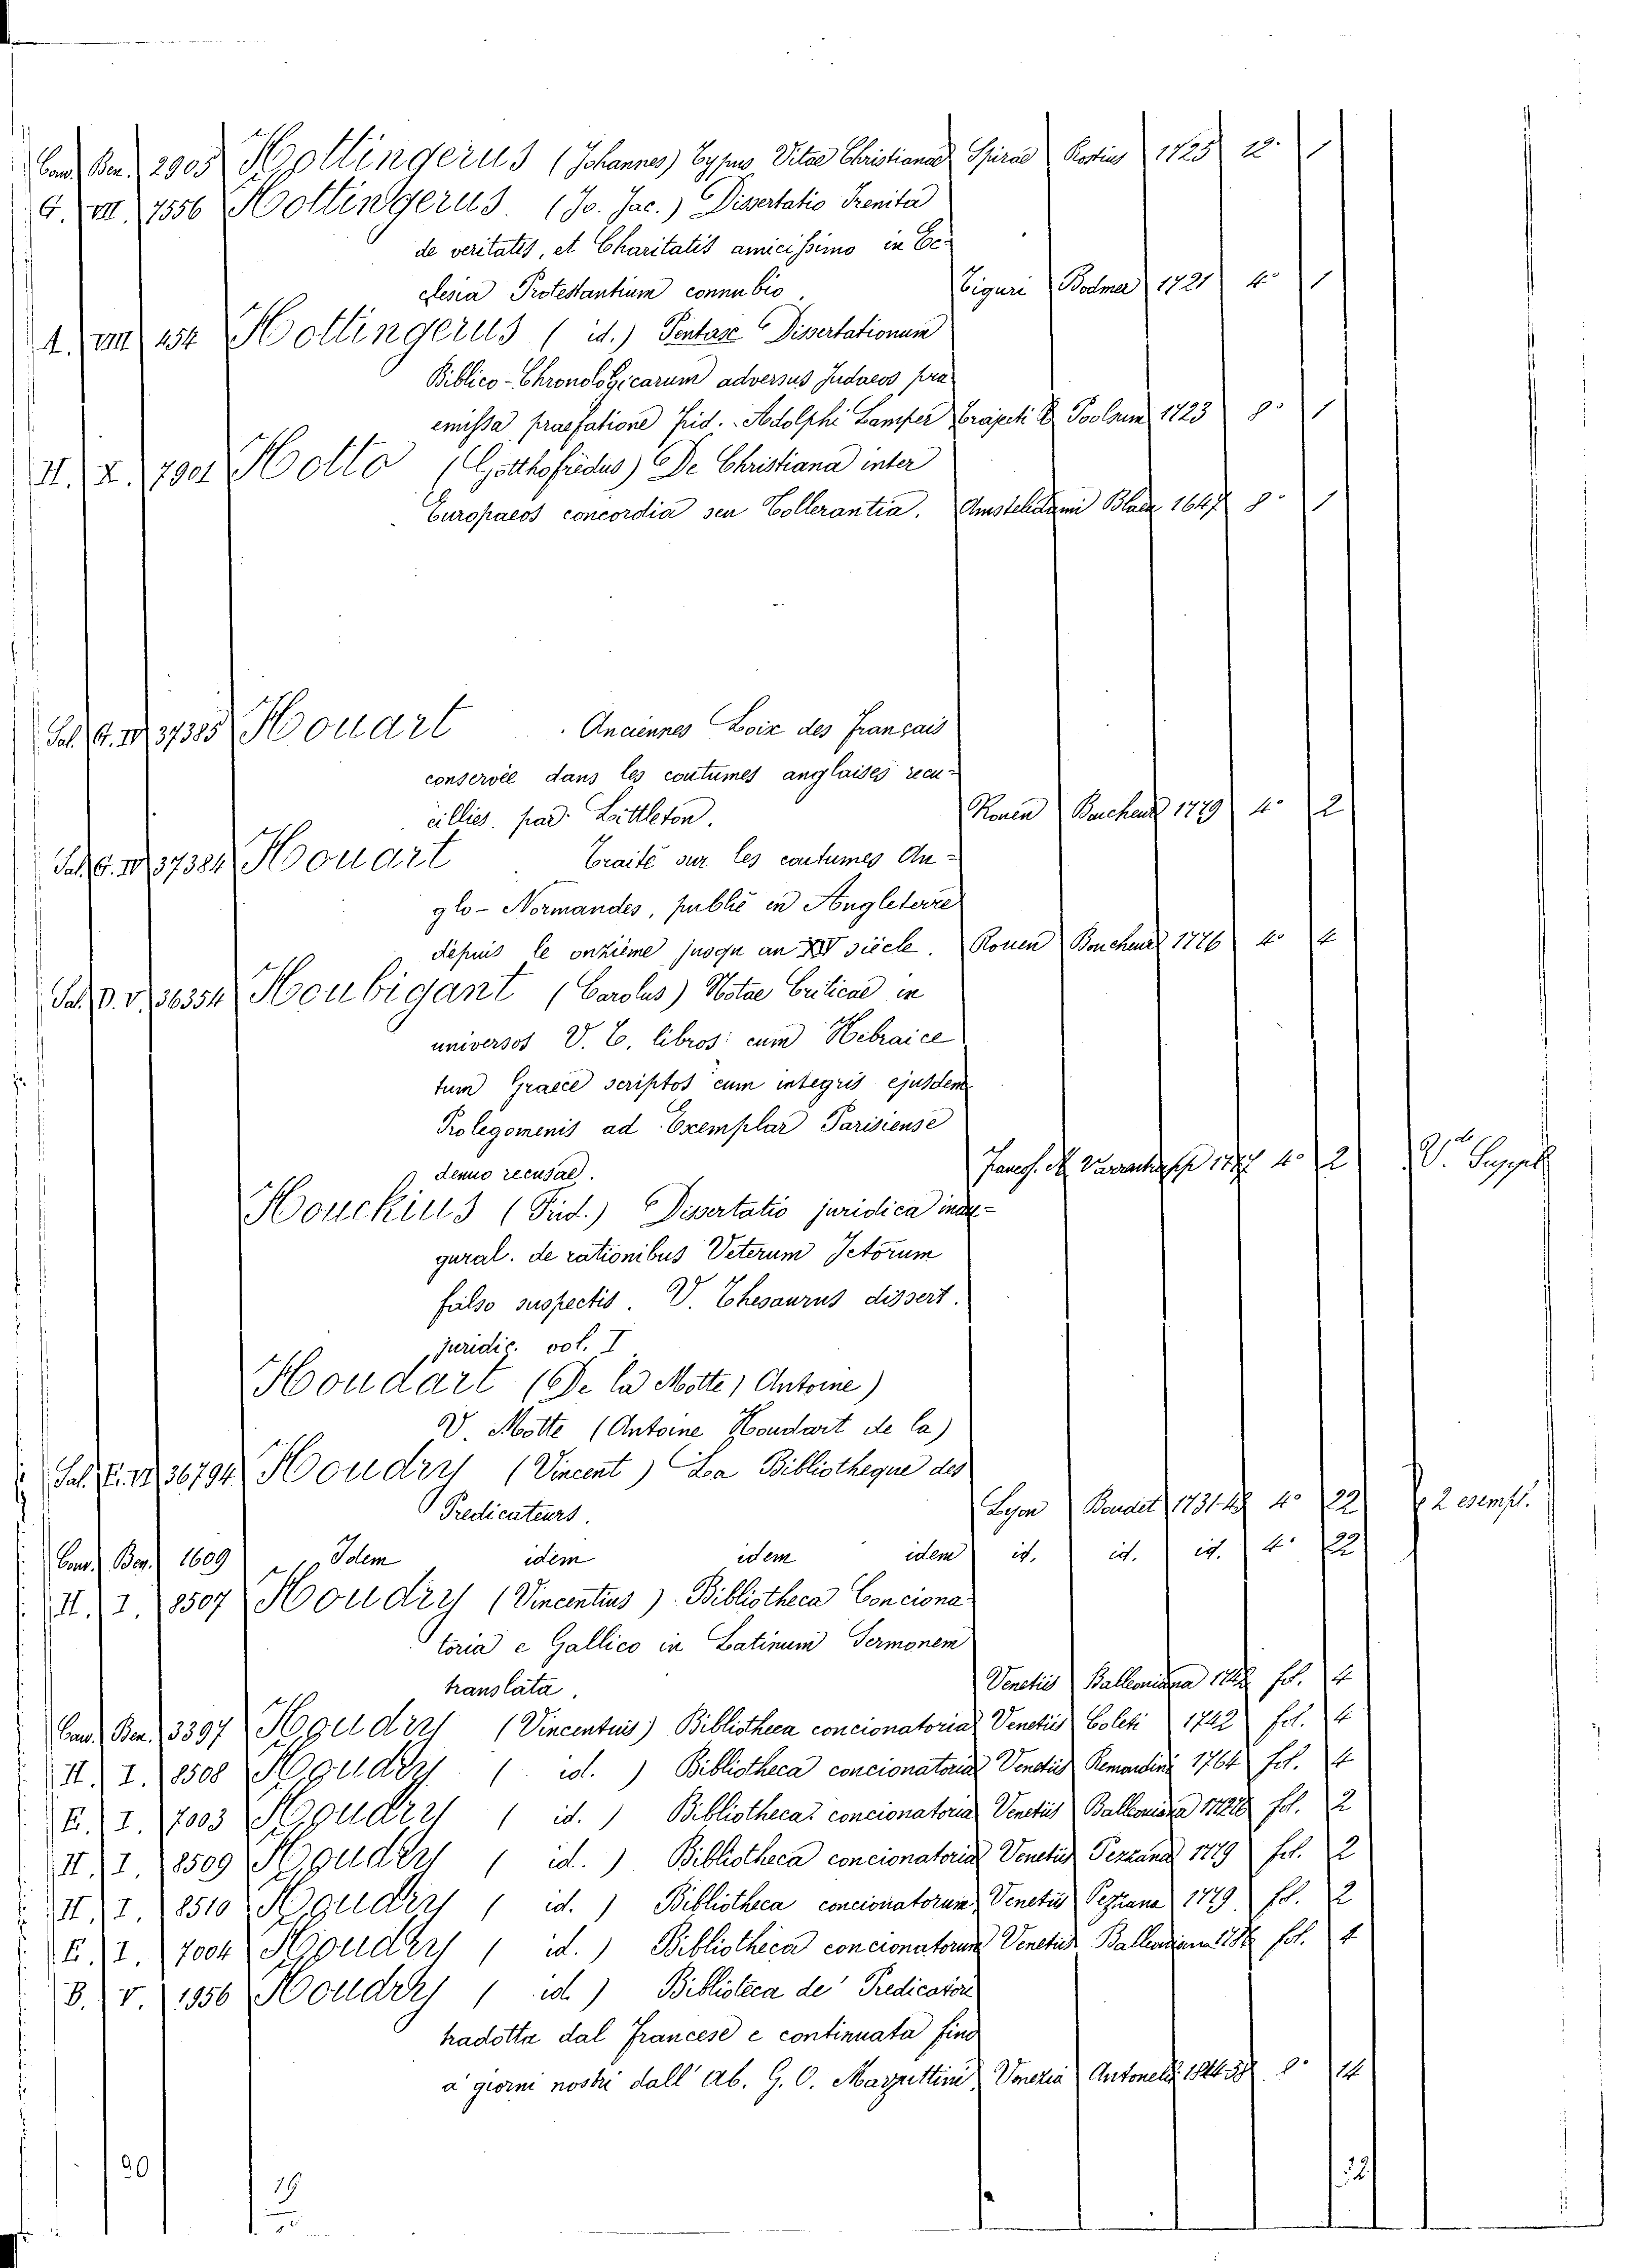 Cam. Ben. 2905 Hottingerus (Johannes) Typus Vitae Christianae Spirae Kortius 1725 12° 1
G. VII. 7556 Hottingerus. (Jo. Jac.) Dissertatio Irenita
de veritatis, et Charitatis amicissimo in Ec-
clesia Protestantium connubio Tiguri Bodmer 1721 4° 1
A. VIII 454 Hottingerus (id.) Pentase Dissertationum
Biblico-Chronologicarum adversus Judaeos pra-
emissa praefatione Frid. Adolphi Lamper Trajecti Poolsum 1723 8° 1
II. X. 7901 Hotto (Gotthofridus) De Christiana inter
Europaeos concordia seu Tollerantia. Amstelodami Blaeu 1647 8° 1
Sal. G. IV 37385 Houart . Anciennes Loix des Français
conservée dans les coutumes anglaises recu-
eillies, par Littleton. Rouen 1779 4° 2
Sal. G. IV 37384 Houart Traité sur les coutumes An-
glo-Normandes, publié en Angleterre
depuis le onzième jusqu an XIV siècle. Rouen 1776 4° 4
Sal. D. V. 36354 Houbigant (Carolus) Notae Criticae in
universos V. T. libros: cum Hebraice
tum Graece scriptos cum integris ejusdem
Prolegomenis ad Exemplar Parisiense
denuo recusae. Francf. M. 1777 4° 2 V. Suppl
Houckius (Frid.) Dissertatio juridica inau-
gural. de rationibus Veterum Jctorum
falso suspectis. V. Thesaurus dissert.
juridic. vol. I
Houdart (De la Motte, Antoine)
V. Motte (Antoine Houdart de la)
Sal. E. VI 36794 Houdry (Vincent) La Bibliotheque des
Predicateurs. Lyon Boudet 1731-43 4° 22 2 esempl.
Cam. Ben. 1609 Idem idem idem idem id. id. id. 4° 22
II. I. 8507 Houdry (Vincentius) Bibliotheca Conciona-
toria e Gallico in Latinum Sermonem
translata. Venetiis Balleoniana 1742 fol. 4
Cam. Ben. 3397 Houdry (Vincentius) Bibliotheca concionatoria Venetiis Coleti 1742 fol. 4
II. I. 8508 Houdry (id.) Bibliotheca concionatoria Venetiis Remondini 1764 fol. 4
E. I. 7003 Houdry (id.) Bibliotheca concionatoria Venetiis Balleoniana fol. 2
II. I. 8509 Houdry (id.) Bibliotheca concionatoria Venetiis Pezzana 1779 fol. 2
II. I. 8510 Houdry (id.) Bibliotheca concionatorum Venetiis Pezzana 1779 fol. 2
E. I. 7004 Houdry (id.) Bibliotheca concionatorum Venetiis fol. 4
B. V. 1956 Houdry (id.) Biblioteca de' Predicatori
tradotta dal Francese e continuata fino
a' giorni nostri dall' Ab. G. O. Marzuttini, Venezia Antonelli 8° 14
20
19
22